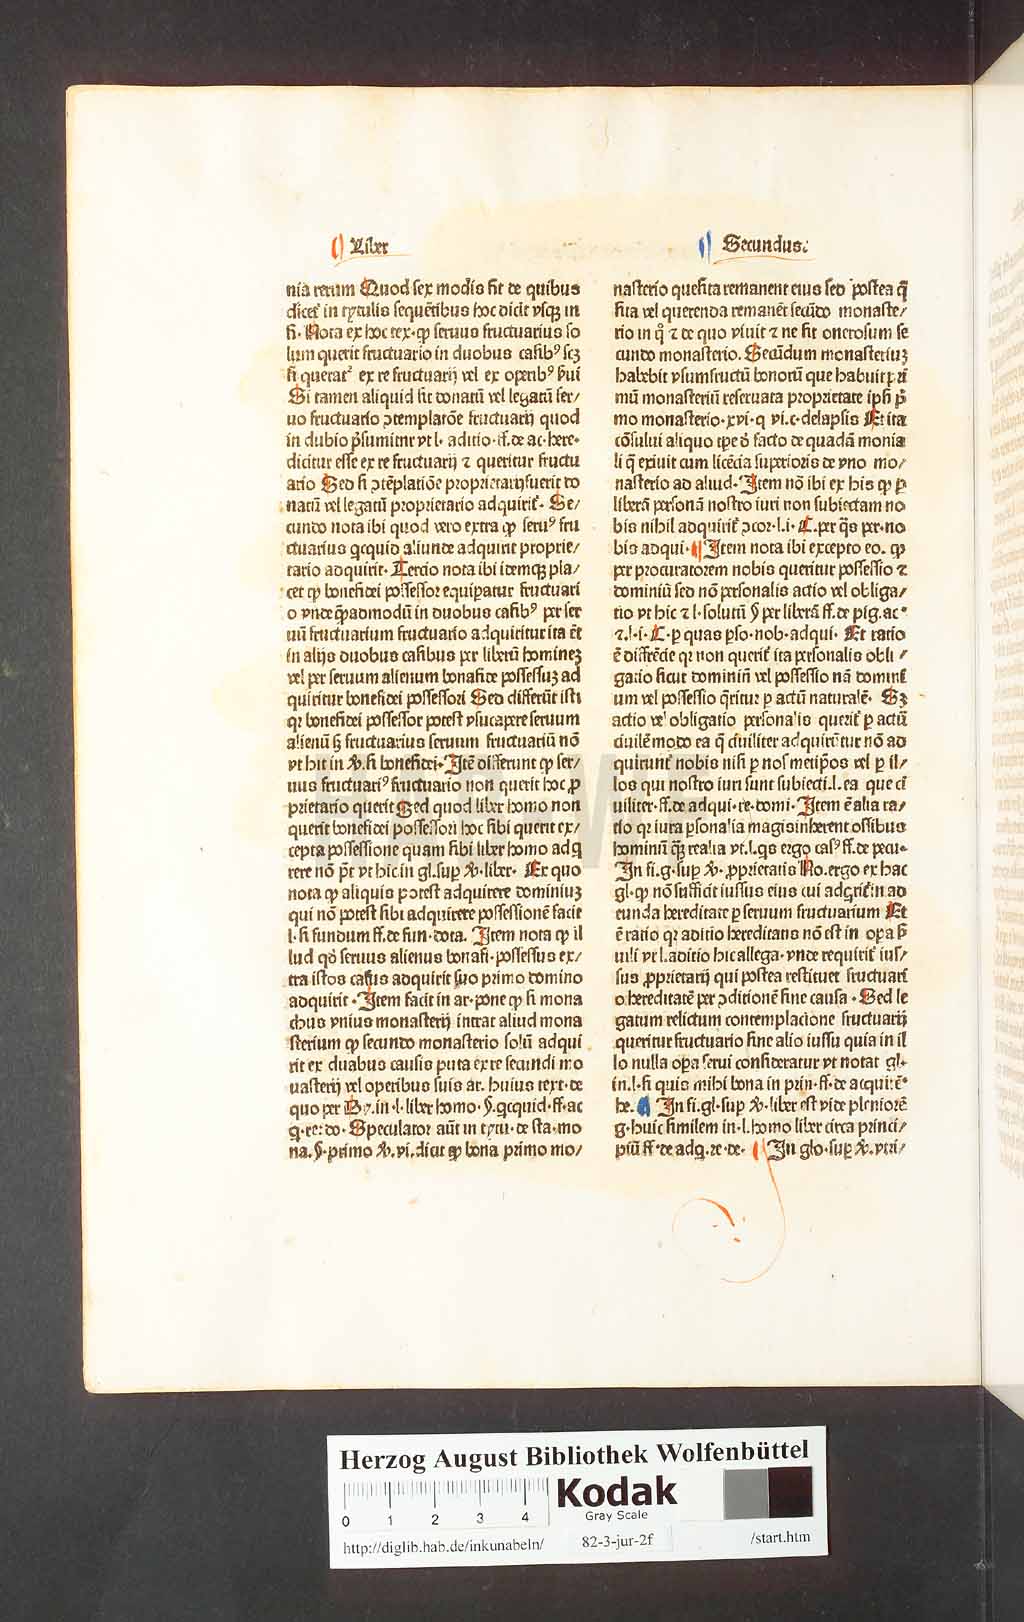 Liber
Secundus:
nia rerum Quod sex modis fit de quibus
dicet̃ in tytulis sequẽtibus hoc dicit vsqꝫ in
fi· Nota ex hoc tex·ꝙ seruus fructuarius so
lum querit fructuario in duobus casibꝰ scꝫ
si querat² ex re fructuarij vel ex operibꝰ ẜui
Si tamen aliquid sit donatũ vel legatũ ser/
uo fructuario ↄtemplatõe fructuarij quod
in dubio p̃sumitur vt l· aditio·ff·de ac·here·
dicitur esse ex re fructuarij ⁊ queritur fructu
ario Sed si ↄtẽplatiõe proprietarij fuerit do
natũ vel legatũ proprietario adquirit̃· Se/
cundo nota ibi quod vero extra ꝙ seruꝰ fru
ctuarius qcquid aliunde adquirit proprie/
tario adquirit· Tercio nota ibi idemqꝫ pla/
cet ꝙ bonefidei possessor equiparatur fructuari
o vnde q̃padmodũ in duobus casibꝰ per ser
uũ fructuarium fructuario adquiritur ita etĩ
in alijs duobus casibus per liberũ homineꝫ
vel per seruum alienum bonafide possessuꝫ ad
quiritur bonefidei possessori Sed differũt isti
qꝛ bonefidei possessor potest vsucapere seruum
alienũ ẜ fructuarius seruum fructuariũ nõ
vt hit in ꝟ·si bonefidei· Itẽ differunt ꝙ ser/
uus fructuariꝰ fructuario non querit hoc ꝓ
prietario querit Sed quod liber homo non
querit bonefidei possessori hoc sibi querit ex/
cepta possessione quam sibi liber homo adq
rere nõ põt vt hic in gl·sup ꝟ·liber· Ex quo
nota ꝙ aliquis potest adquirere dominiuꝫ
qui nõ potest sibi adquirere possessionẽ facit
l·si fundum ff·de fun·dota. Item nota ꝙ il
lud qđ seruus alienus bonafi·possessus ex/
tra istos casus adquirit suo primo domino
adquirit · Item facit in ar·pone ꝙ si mona
chus vnius monasterij intrat aliud mona
sterium ꝙ secundo monasterio solũ adqui
rit ex duabus causis puta ex re secundi mo
nasterij vel operibus suis ar. huius text·de
quo per By.in·l·liber homo·§·qcquid·ff·ac
q·re·do· Speculator aũt in tytu·de sta·mo
na.§·primo ꝟ·vi.dicit ꝙ bona primo mo/
nasterio quesita remanent eius sed postea q̃
sita vel querenda remanẽt secũdo monaste/
rio in q̊ ⁊ de quo viuit ⁊ ne sit onerosum se
cundo monasterio. Secũdum monasteriuꝫ
habebit vsumfructũ bonorũ que habuit pri
mũ monasteriũ reseruata proprietate ipsi p̃
mo monasterio·xvi·q vi.c·delapsis Et ita
cõsului aliquo tpe đ facto de quadã monia
li q̃ exiuit cum licẽcia superioris de vno mo/
nasterio ad aliud· Item nõ ibi ex his ꝙ ꝑ
liberã personã nostro iuri non subiectam no
bis nihil adquirit̃ ↄcor·l.i· C.per q̃s per·no
bis adqui· Item nota ibi excepto eo. ꝙ
per procuratorem nobis queritur possessio ⁊
dominiũ sed nõ personalis actio vel obliga/
tio vt hic ⁊ l·solutũ § per liberã ff·de pig.ac·
⁊.l·i· C·ꝑ quas pso·nob·adqui· Et ratio
ẽ differẽcie qꝛ non querit̃ ita personalis obli/
gatio sicut dominiũ vel possessio nã domini
um vel possessio q̃ritur ꝑ actũ naturalẽ· Sꝫ
actio vel obligatio personalis querit̃ ꝑ actũ
ciuilẽ modo ea q̃ ciuiliter adquirũtur nõ ad
quirunt̃ nobis nisi ꝑ nos metipos vel ꝑ il/
los qui nostro iuri sunt subiecti.l. ea que ci
uiliter·ff·de adqui·re·domi· Item ẽ alia ra/
tio qꝛ iura psonalia magis inherent ossibus
hominũ q̃ꝫ realia vt.l·qs ergo casꝰ ff·de pecu·
In fi.g·sup ꝟ·ꝓprietatis No.ergo ex hac
gl·ꝙ nõ sufficit iussus eius cui adqrit̃ in ad
eunda hereditate ꝑ seruum fructuarium Et
ẽ ratio qꝛ aditio hereditatis nõ est in opa ẜ
uili vt l.aditio hic allega·vnde requirit̃ ius/
sus ꝓprietarij qui postea restituet fructuari
o hereditatẽ per ↄditionẽ sine causa · Sed le
gatum relictum contemplacione fructuarij
queritur fructuario sine alio iussu quia in il
lo nulla opa serui consideratur vt notat gl·
in.l·si quis mihi bona in prin·ff·de acquirẽ·
he. In fi.gl·sup ꝟ·liber est vide pleniorẽ
g·huic similem in·l.homo liber circa princi/
piũ ff·de adq.re·do· In glo·sup ꝟ.vtri/
HAB WF
Herzog August Bibliothek Wolfenbüttel
0 1 2 3 4
Kodak
Gray Scale
http://diglib.hab.de/inkunabeln/ 82-3-jur-2f /start.htm